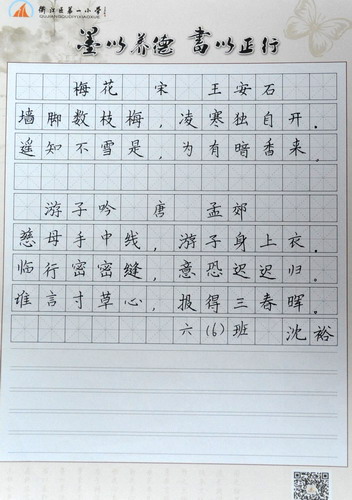 衢江区第一小学
QUJIANGQUDIYIXIAOXUE
墨以养德 书以正行
梅花 宋 王安石
墙脚数枝梅，凌寒独自开。
遥知不雪是，为有暗香来，
游子吟 唐 孟郊
慈母手中线，游子身上衣。
临行密密缝，意恐迟迟归。
谁言寸草心，报得三春晖。
六（6）班 沈裕